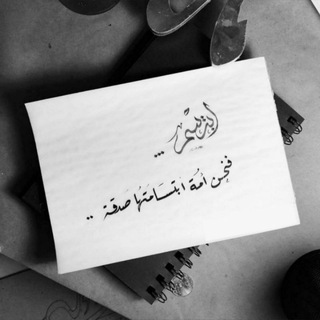 ابتسم ...
فنحن أمة ابتسامتها صدقة ..